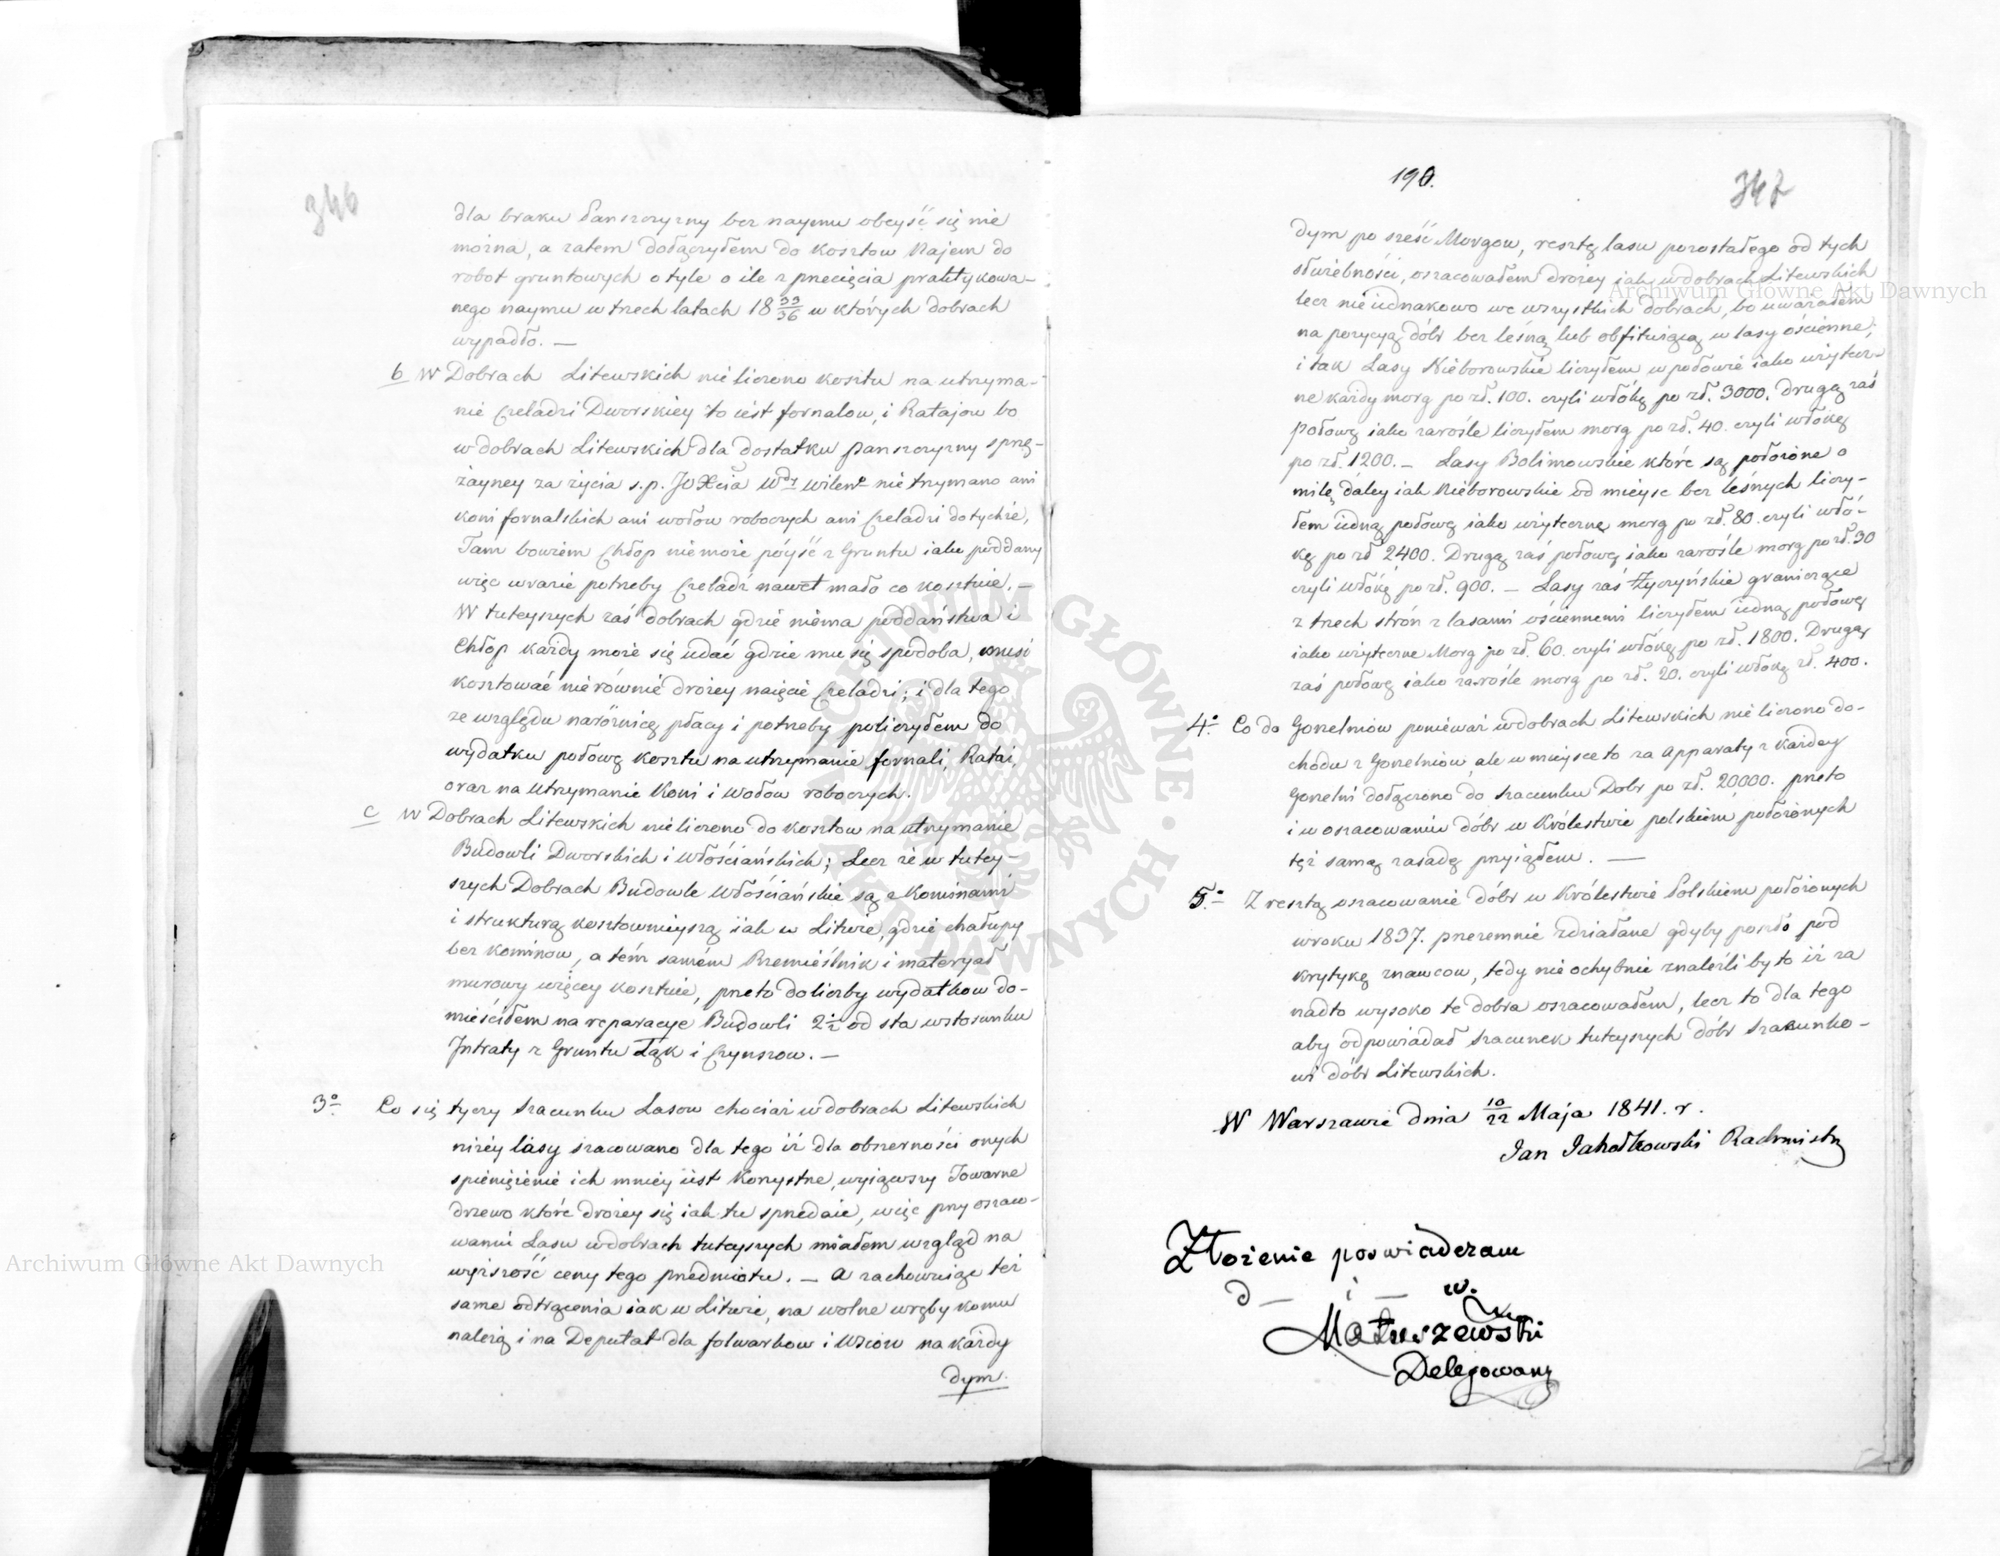 346
dla braku Panszczyzny bez naymu obeyść się nie
można, a zatem dołączyłem do kosztow Najem do
robot gruntowych o tyle o ile z przecięcia praktykowa-
nego naymu w trzech latach 18 33/36 w których dobrach
wypadło. —
b W Dobrach Litewskich nie liczono kosztu na utrzyma-
nie Czeladzi Dworskiey to iest fornalow, i Ratajow bo
w dobrach Litewskich dla dostatku panszczyzny sprzę-
żayney za życia s.p. JO Xcia nie trzymano ani
koni fornalskich ani wołow roboczych ani Czeladzi do tychże,
Tam bowiem Chłop nie może póyść z Gruntu iako poddany
więc w razie potrzeby Czeladź nawet mało co kosztuie. —
W tuteyszych zaś dobrach gdzie niema poddaństwa i
Chłop każdy może się udać gdzie mu się spodoba, musi
kosztować nierównie drożey naięcie Czeladzi; i dla tego
ze względu na różnicę płacy i potrzeby policzyłem do
wydatku połowę kosztu na utrzymanie fornali, Ratai,
oraz na utrzymanie Koni i Wołow roboczych.
c W Dobrach Litewskich nie liczono do kosztow na utrzymanie
Budowli Dworskich i Włościańskich; Lecz że w tutey-
szych Dobrach Budowle Włościańskie są z Kominami
i strukturą kosztownieyszą iak w Litwie, gdzie chałupy
bez kominow, a tém samém Rzemieślnik i materyał
murowy więcey kosztuie, przeto do liczby wydatkow do-
mieściłem na reparacye Budowli 2 1/2 od sta w stosunku
Intraty z Gruntu Łąk i Czynszow. —
3° Co się tyczy szacunku Lasow chociaż w dobrach Litewskich
niżey lasy szacowano dla tego iż dla obszerności onych
spieniężenie ich mniey iest korzystne, wyiąwszy Towarne
drzewo które drożey się iak tu sprzedaie, więc przy oszaco-
waniu Lasu w dobrach tuteyszych miałem wzgląd na
wyższość ceny tego przedmiotu. — A zachowuiąc też
same odtrącenia iak w Litwie, na wolne wręby komu
należą i na Deputat dla folwarkow i Wsiow na każdy
dym.
190.
347
dym po sześć Morgow, resztę lasu pozostałego od tych
służebności, oszacowałem drożey iak w dobrach Litewskich
lecz nie iednakowo we wszystkich dobrach, bo uważałem
na pozycyą dóbr bez leśną lub obfituiącą w lasy ościenne,
i tak Lasy Nieborowskie liczyłem w połowie iako użytecz-
ne każdy morg po zł. 100. czyli włókę po zł. 3000. Drugą zaś
połowę iako zarośle liczyłem morg po zł. 40. czyli włokę
po zł. 1200. — Lasy Bolimowskie które są położone o
milę daley iak Nieborowskie od mieysc bez leśnych liczy-
łem iedną połowę iako użyteczne morg po zł. 80. czyli włó-
kę po zł 2400. Drugą zaś połowę iako zarośle morg po zł. 30
czyli włókę po zł. 900. — Lasy zaś Życzyńskie graniczące
z trzech strón z lasami ościennemi liczyłem iedną połowę
iako użyteczne Morg po zł. 60. czyli włókę po zł. 1800. Drugą
zaś połowę iako zarośle morg po zł. 20. czyli włókę zł. 400.
4° Co do Gorzelniow ponieważ w dobrach Litewskich nie liczono do-
chodu z Gorzelniow, ale w mieysce to za Apparaty z każdey
Gorzelni dołączono do szacunku Dobr po zł. 20000. przeto
i w oszacowaniu dóbr w Królestwie polskiém położonych
też samą zasadę przyiąłem. —
5° Z resztą oszacowanie dóbr w Królestwie Polskiem położonych
w roku 1837. przezemnie zdziałane gdyby poszło pod
krytykę znawcow, tedy nieochybnie znaleźli by to iż za
nadto wysoko te dobra oszacowałem, lecz to dla tego
aby odpowiadał szacunek tuteyszych dóbr szacunko-
wi dóbr Litewskich.
W Warszawie dnia 10/22 Maja 1841. r.
Jan Jakołkowski Rachmistrz
Złożenie poswiadczam
d — i — w.
Matuszewski
Delegowany
Archiwum Główne Akt Dawnych
Archiwum Główne Akt Dawnych
ARCHIWUM GŁÓWNE AKT DAWNYCH